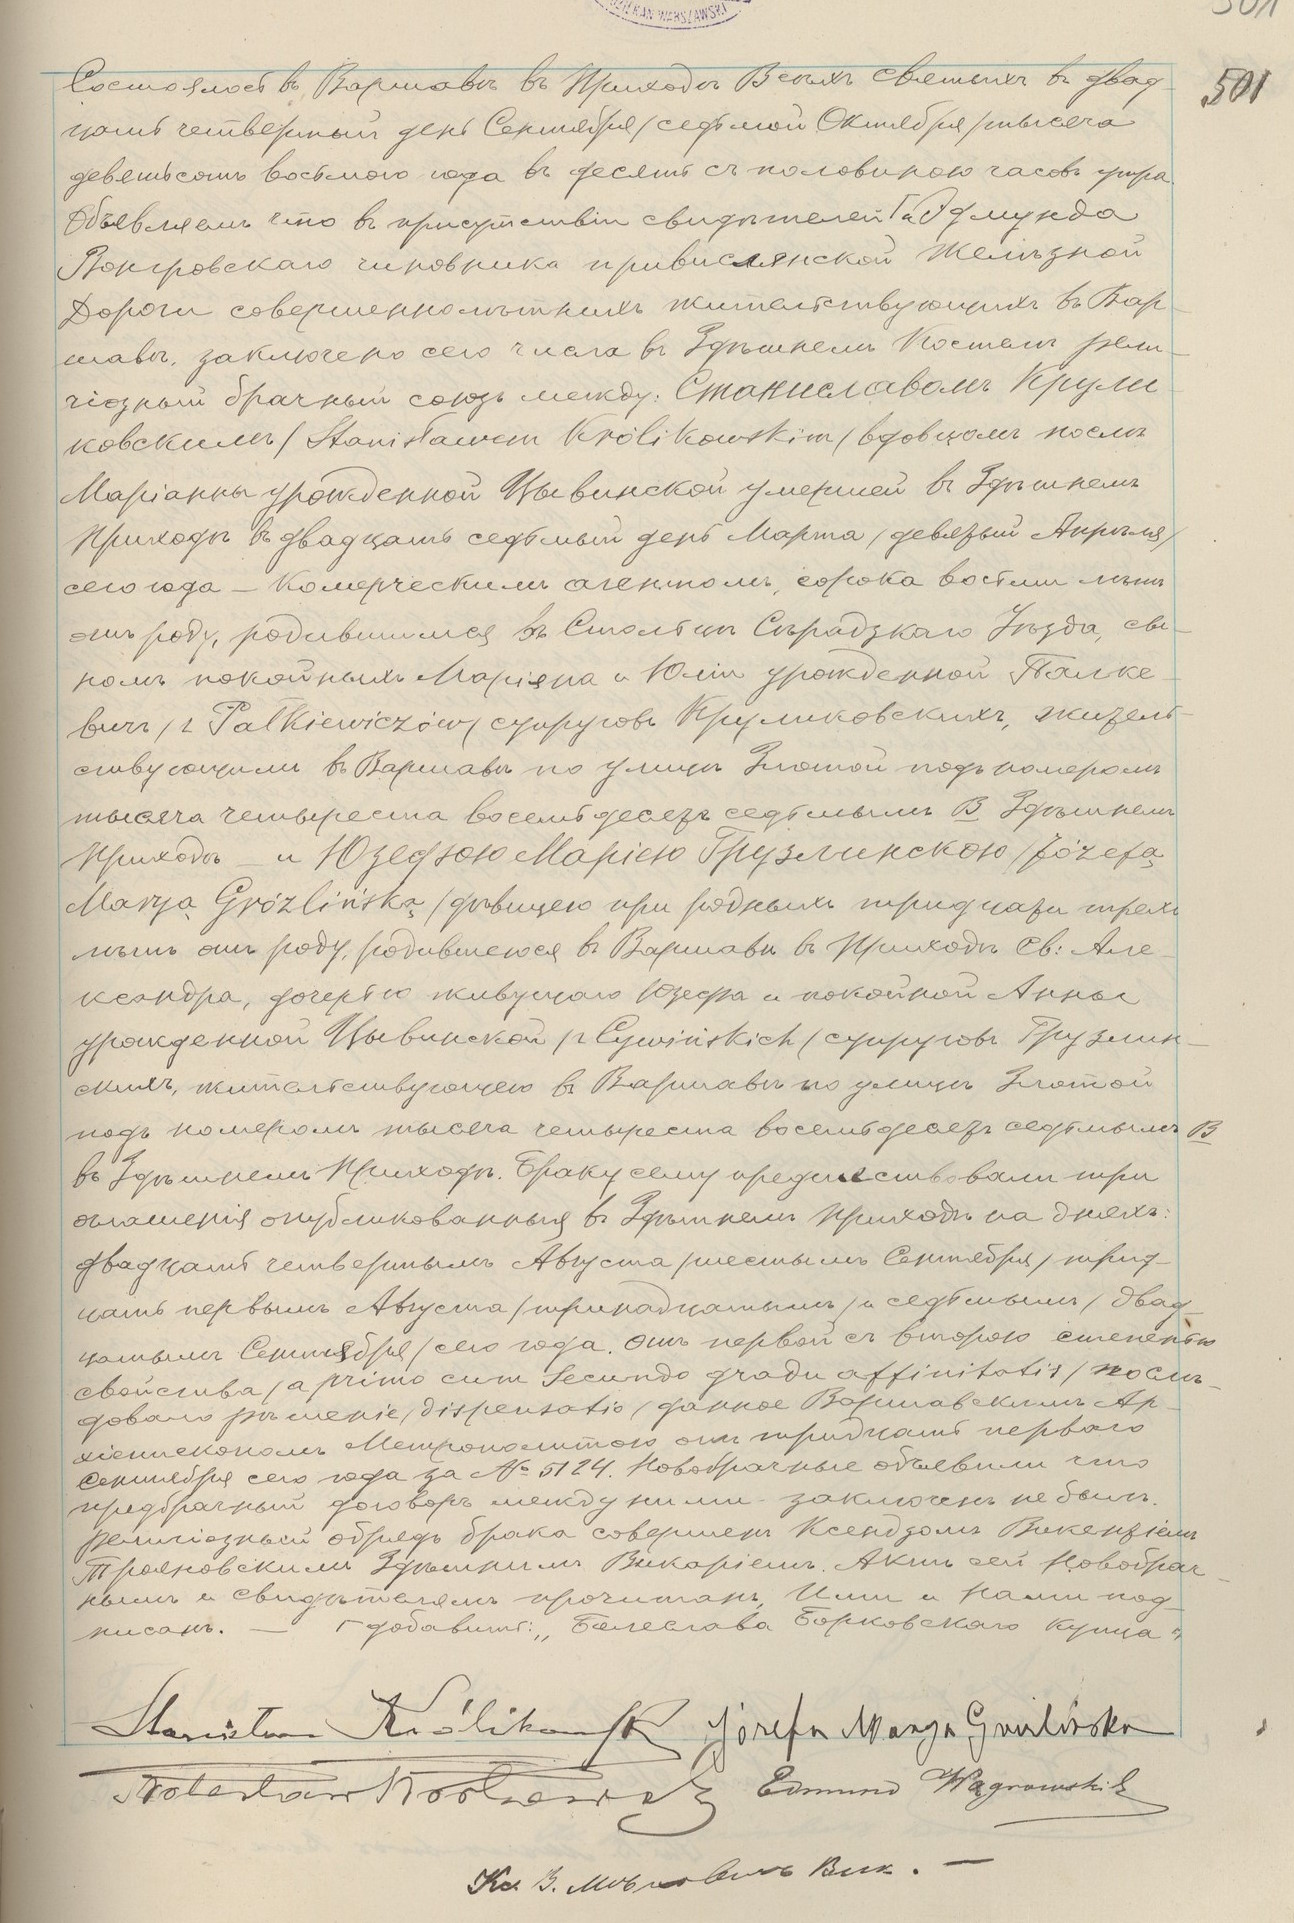 DZIEKAN WARSZAWSKI
501
501
Состоялось въ Варшавѣ въ Приходѣ Всѣхъ Святыхъ въ двад-
цать четвертый день Сентября /седьмой Октября/ тысяча
девятьсотъ восьмого года въ десять съ половиною часовъ утра.
Объявляемъ что въ присутствіи свидѣтелей Г и Эдмунда
Вонгровскаго чиновника привислянской Желѣзной
Дороги совершеннолѣтнихъ жительствующихъ въ Вар-
шавѣ, заключено сего числа въ Здѣшнемъ Костелѣ рели-
гіозный брачный союзъ между: Станиславомъ Крули
ковскимъ /Stanisławem Królikowskim/ вдовцомъ послѣ
Маріанны урожденной Цывинской умершей въ Здѣшнемъ
Приходѣ въ двадцать седьмый день Марта /девятый Апрѣля/
сего года — Комерческимъ агентомъ, сорока восьми лѣтъ
отъ роду, родившимся въ Сѣрадзкаго Уѣзда, сы-
номъ покойныхъ Маріяна и Юліи урожденной Палке-
вичъ /z Palkiewiczów/ супруговъ Круликовскихъ, житель-
ствующимъ въ Варшавѣ по улицѣ Злотой подъ номеромъ
тысяча четыреста восемьдесятъ седьмымъ В Здѣшнемъ
Приходѣ — и Юзефою Маріею Грузлинскою /Józefą
Maryą Gróźlińską/ дѣвицею при родныхъ тридцати трехъ
лѣтъ отъ роду, родившеюся въ Варшавѣ въ Приходѣ Св: Але-
ксандра, дочерью живущаго Юзефа и покойной Анны
урожденной Цывинской /z Cywińskich/ супруговъ Грузлин-
скихъ, жительствующею въ Варшавѣ по улицѣ Злотой
подъ номеромъ тысяча четыреста восемьдесятъ седьмымъ В
въ Здѣшнемъ Приходѣ. Браку сему предшествовали три
оглашенія опубликованныя въ Здѣшнемъ Приходѣ на дняхъ:
двадцать четвертымъ Августа /шестымъ Сентября/ трид-
цать первымъ Августа /тринадцатымъ/ и седьмымъ /двад-
цатымъ Сентября/ сего года. Отъ первой съ второю степенью
свойства /a primo cum secundo gradu affinitatis/ послѣ-
довало рѣшеніе /dispensatio/ данное Варшавскимъ Ар-
хіепископомъ Митрополитомъ отъ тридцать перваго
Сентября сего года за № 5124. Новобрачные объявили что
предбрачный договоръ между ними заключенъ не былъ.
Религіозный обрядъ брака совершенъ Ксендзомъ Викентіемъ
Трояновскимъ Здѣшнимъ Викаріемъ. Актъ сей Новобрач-
нымъ и свидѣтелямъ прочитанъ, Ими и Нами под-
писанъ. — Г добавить: „Болеслава Борковскаго Купца"
Stanisław Królikowski Józefa Marya Gruzlińska
Bolesław Borkowski Edmund Wągrowski
Кс. Вик. —